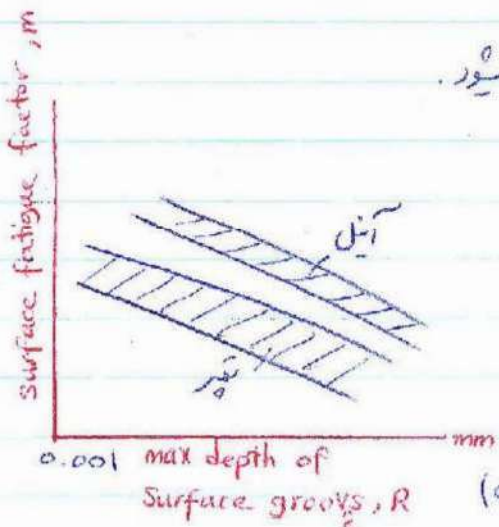 شود.
surface fatigue factor, m
آنیل
تمپر
0.001
mm
max depth of
Surface groovs, R